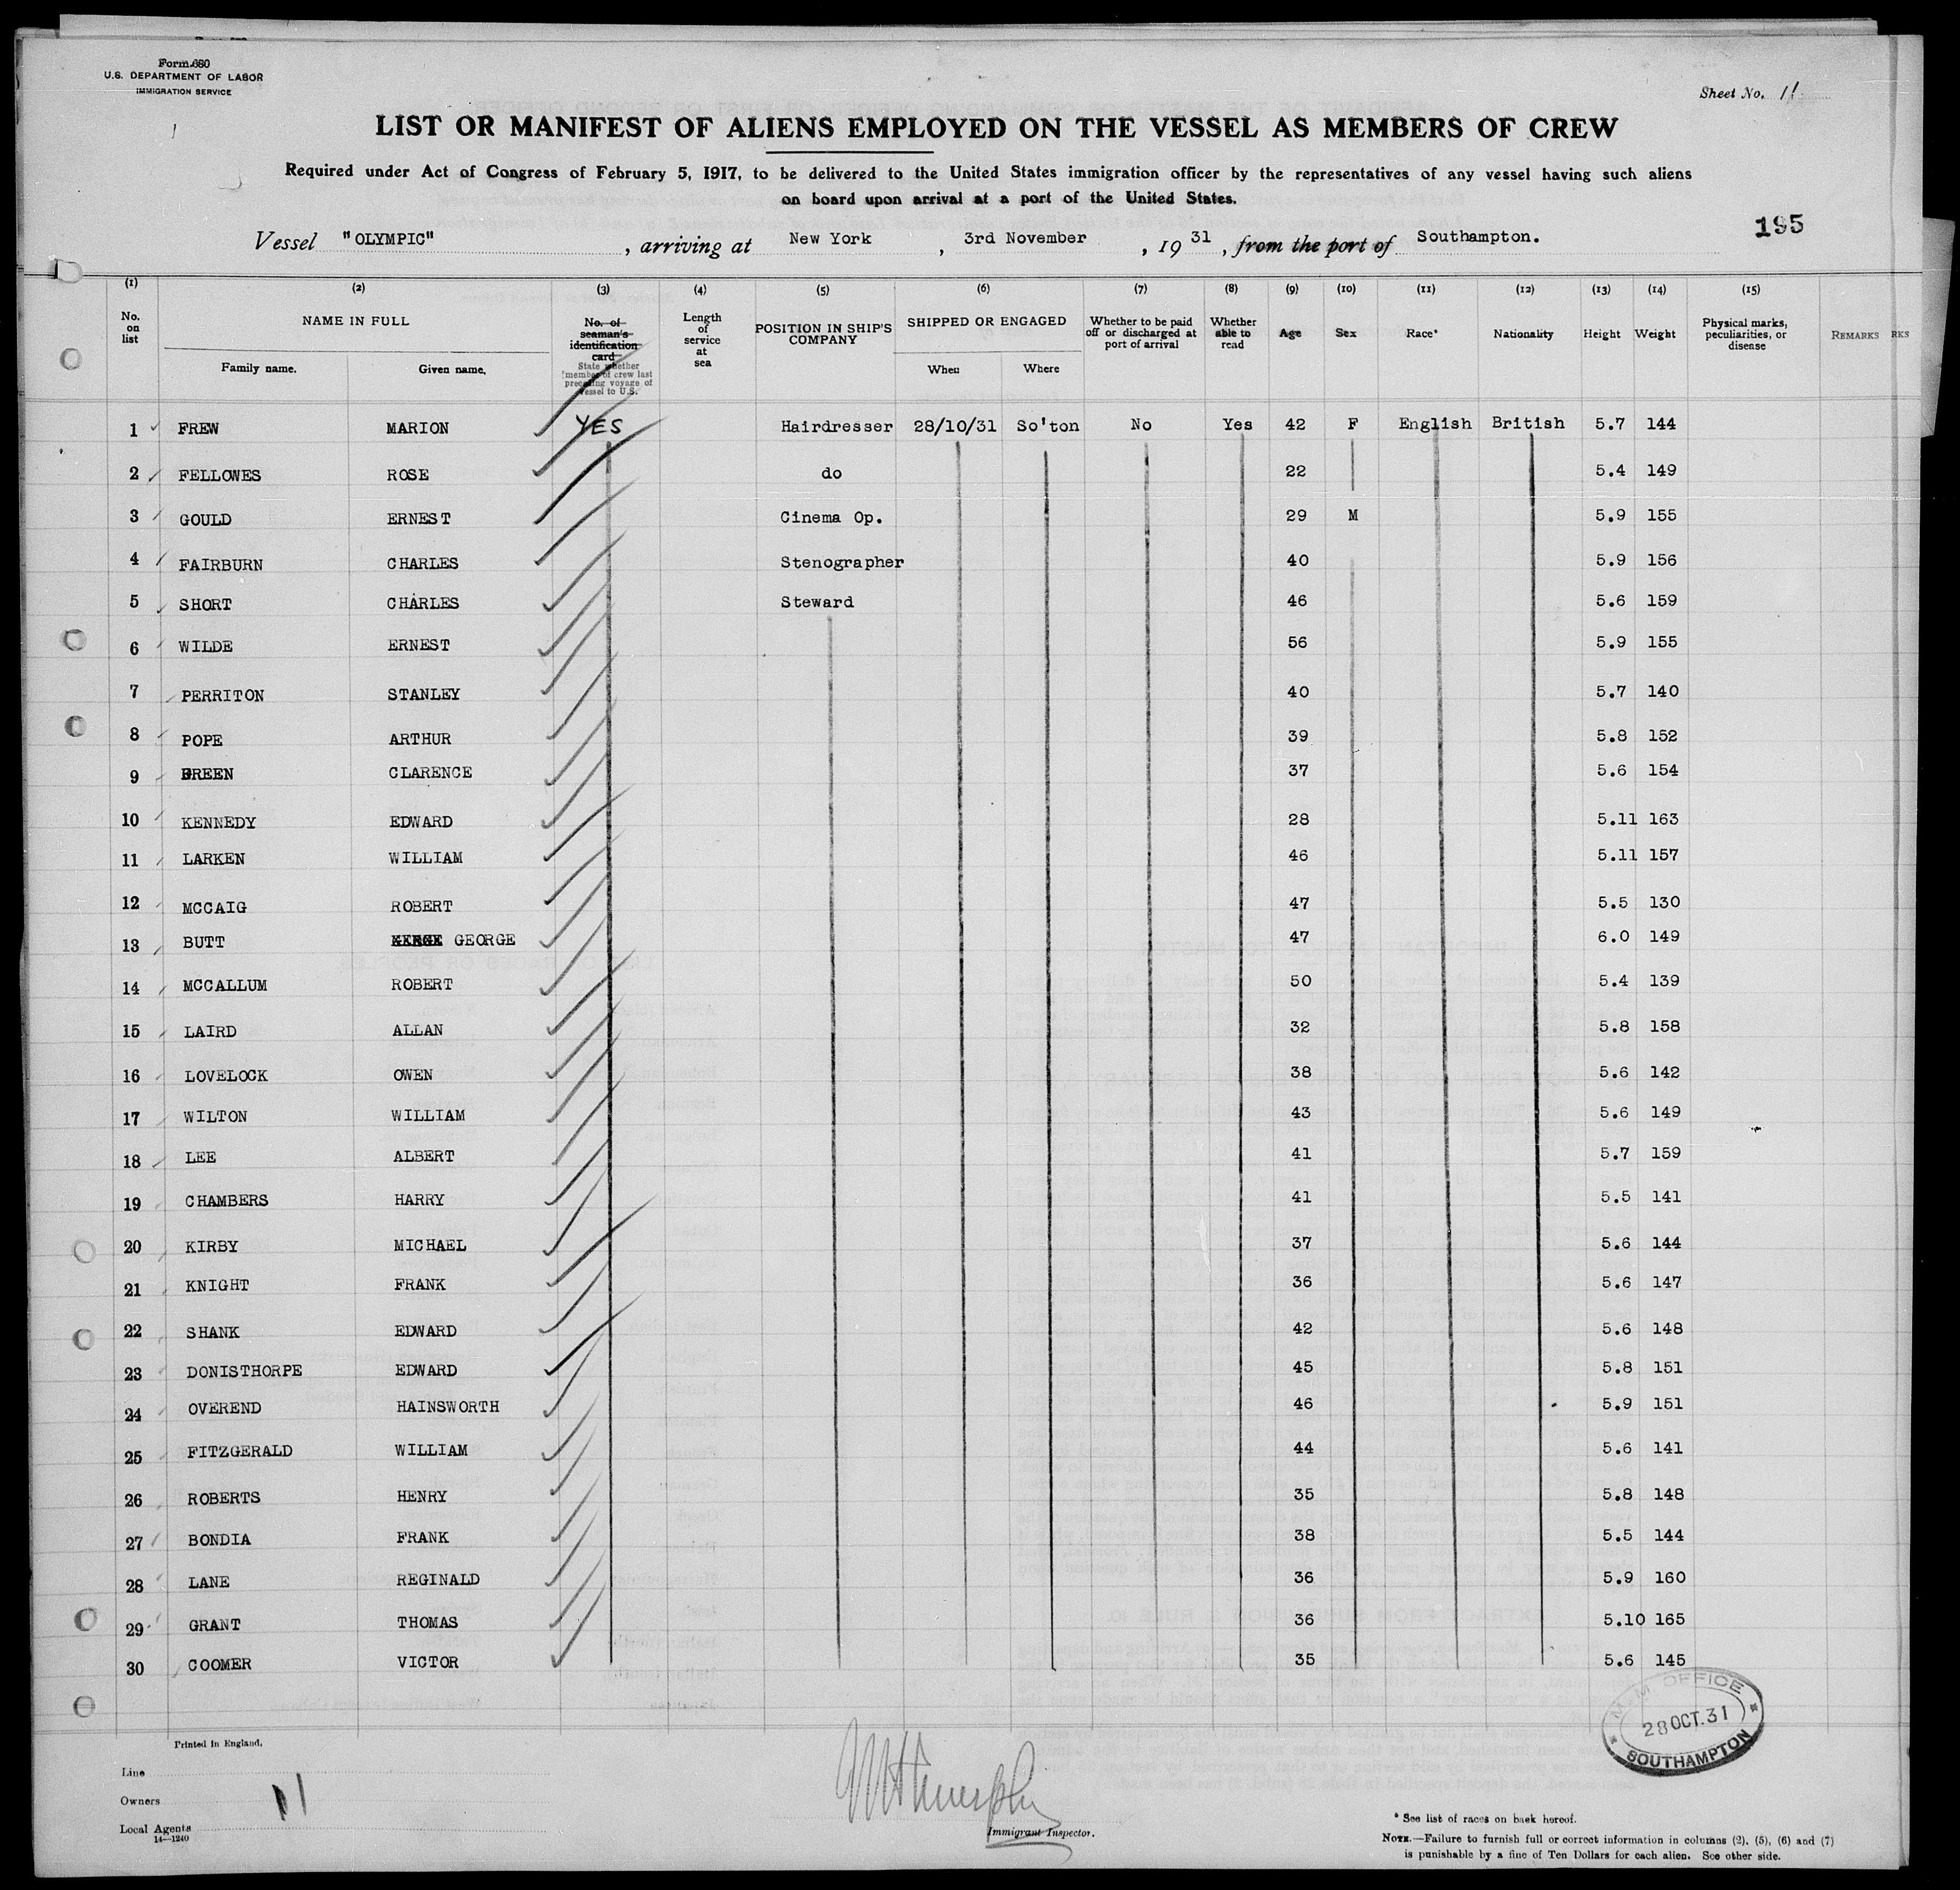 Form 680
U.S. DEPARTMENT OF LABOR
IMMIGRATION SERVICE
Sheet No. 11
LIST OR MANIFEST OF ALIENS EMPLOYED ON THE VESSEL AS MEMBERS OF CREW
Required under Act of Congress of February 5, 1917, to be delivered to the United States immigration officer by the representatives of any vessel having such aliens
on board upon arrival at a port of the United States.
195
Vessel "OLYMPIC", arriving at New York, 3rd November, 1931, from the port of Southampton.
(1) (2) (3) (4) (5) (6) (7) (8) (9) (10) (11) (12) (13) (14) (15)
No. on list NAME IN FULL Family name. Given name. No. of seaman's identification card State whether member of crew last preceding voyage of vessel to U.S. Length of service at sea POSITION IN SHIP'S COMPANY SHIPPED OR ENGAGED When Where Whether to be paid off or discharged at port of arrival Whether able to read Age Sex Race* Nationality Height Weight Physical marks, peculiarities, or disease REMARKS RKS
1 FREW MARION YES Hairdresser 28/10/31 So'ton No Yes 42 F English British 5.7 144
2 FELLOWES ROSE do 22 5.4 149
3 GOULD ERNEST Cinema Op. 29 M 5.9 155
4 FAIRBURN CHARLES Stenographer 40 5.9 156
5 SHORT CHARLES Steward 46 5.6 159
6 WILDE ERNEST 56 5.9 155
7 PERRITON STANLEY 40 5.7 140
8 POPE ARTHUR 39 5.8 152
9 CLARENCE 37 5.6 154
10 KENNEDY EDWARD 28 5.11 163
11 LARKEN WILLIAM 46 5.11 157
12 MCCAIG ROBERT 47 5.5 130
13 BUTT GEORGE 47 6.0 149
14 MCCALLUM ROBERT 50 5.4 139
15 LAIRD ALLAN 32 5.8 158
16 LOVELOCK OWEN 38 5.6 142
17 WILTON WILLIAM 43 5.6 149
18 LEE ALBERT 41 5.7 159
19 CHAMBERS HARRY 41 5.5 141
20 KIRBY MICHAEL 37 5.6 144
21 KNIGHT FRANK 36 5.6 147
22 SHANK EDWARD 42 5.6 148
23 DONISTHORPE EDWARD 45 5.8 151
24 OVEREND HAINSWORTH 46 5.9 151
25 FITZGERALD WILLIAM 44 5.6 141
26 ROBERTS HENRY 35 5.8 148
27 BONDIA FRANK 38 5.5 144
28 LANE REGINALD 36 5.9 160
29 GRANT THOMAS 36 5.10 165
30 COOMER VICTOR 35 5.6 145
M.M OFFICE
28 OCT.31
SOUTHAMPTON
Printed in England.
Line
Owners
11
Local Agents
14—1240
Immigrant Inspector.
* See list of races on back hereof.
NOTE.—Failure to furnish full or correct information in columns (2), (5), (6) and (7)
is punishable by a fine of Ten Dollars for each alien. See other side.